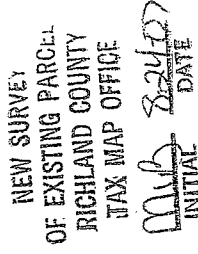 NEW SURVEY
OF EXISTING PARCEL
RICHLAND COUNTY
TAX MAP OFFICE
mub 8-24-07
INITIAL DATE